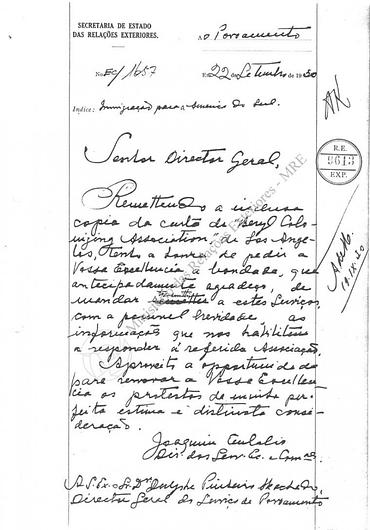 SECRETARIA DE ESTADO
DAS RELAÇÕES EXTERIORES.
Ao Povoamento
No. EC/1657
Em 22 de Setembro de 1930
Indice: Immigração para a America do Sul.
Senhor Director Geral,
Remettendo a inclusa
copia da carta da "Beryl Colo-
nizing Association," de Los Ange-
les, tenho a honra de pedir a
Vossa Excellencia a bondade, que
antecipadamente agradeço, de
mandar a estes Serviços,
com a possivel brevidade as
informações que nos habilitem
a responder á referida Associação.
Aproveito a opportunidade
para renovar a Vossa Excellen-
cia os protestos da minha per-
feita estima e distincta consi-
deração.
Joaquim Eulalio
Dir. dos Serv. Ec. e Com.
A S. Ex. o Sr. Dr. Dulphe Pinheiro Machado,
Director Geral do Serviço de Povoamento
R.E.
9613
EXP.
Ministério das Relações Exteriores - MRE